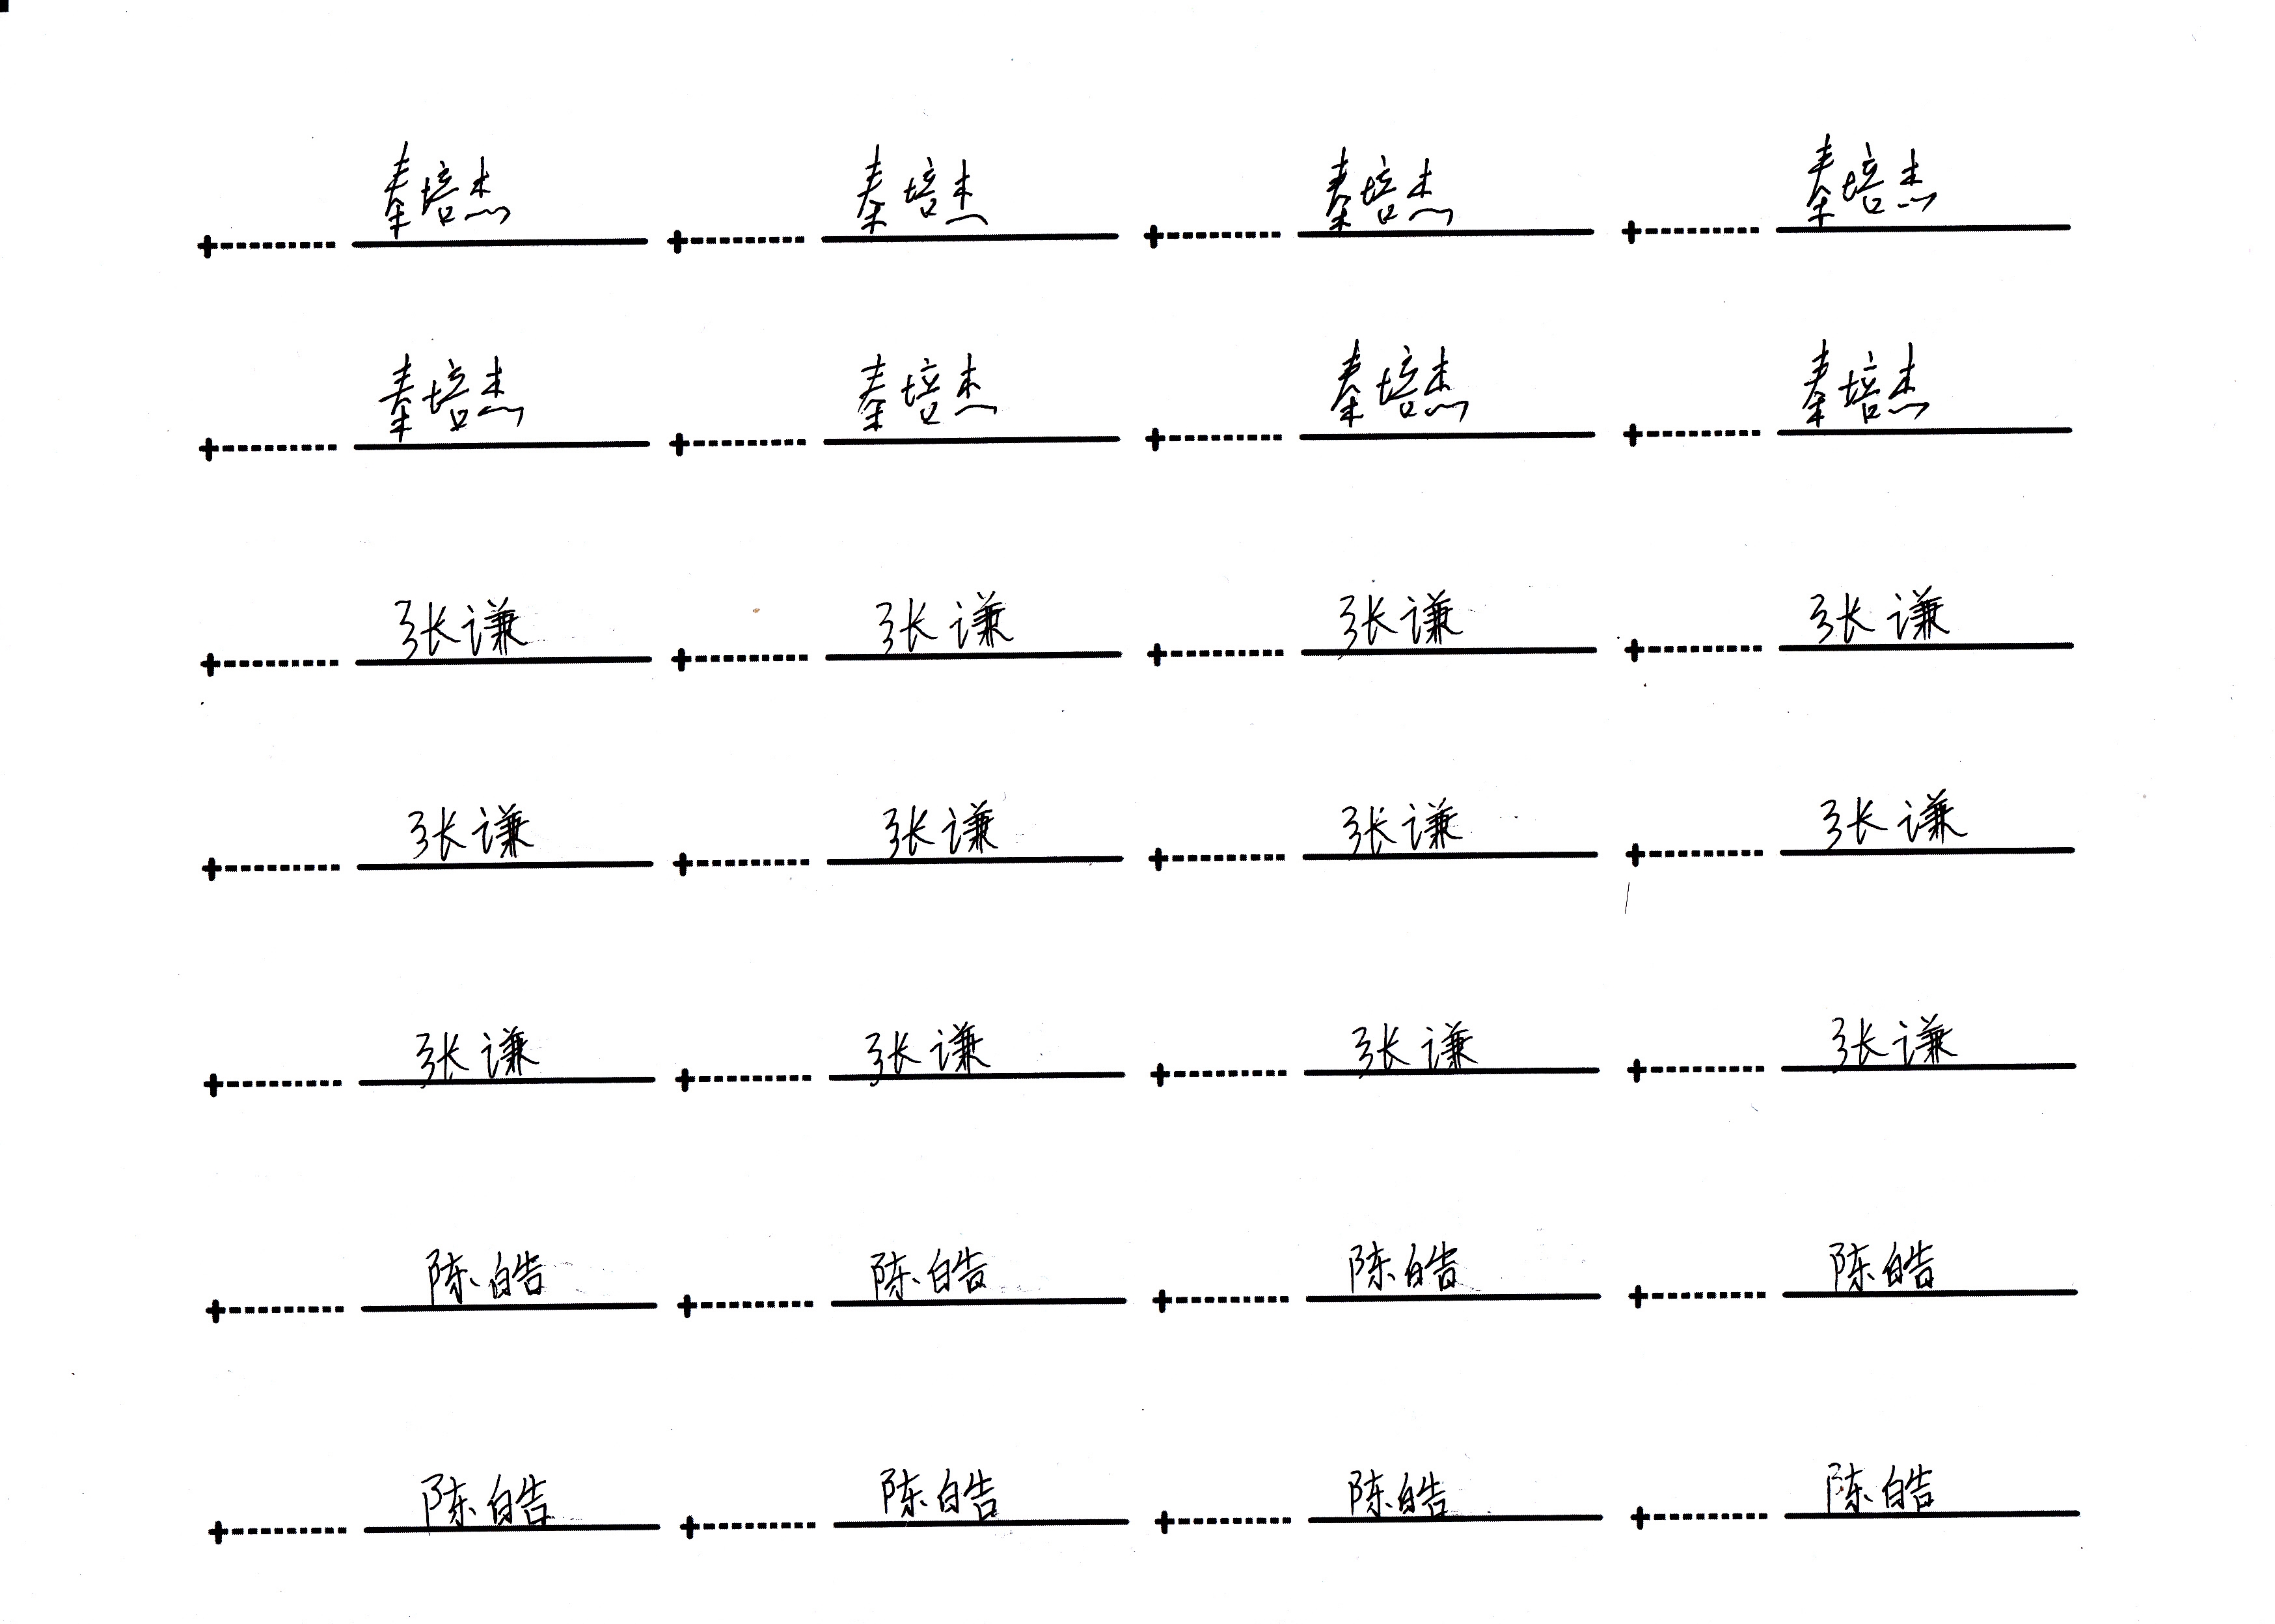 秦培杰 秦培杰 秦培杰 秦培杰
秦培杰 秦培杰 秦培杰 秦培杰
张谦 张谦 张谦 张谦
张谦 张谦 张谦 张谦
张谦 张谦 张谦 张谦
陈皓 陈皓 陈皓 陈皓
陈皓 陈皓 陈皓 陈皓